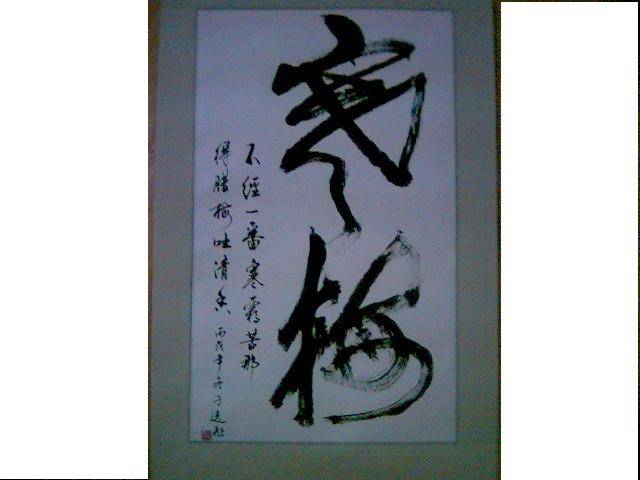 寒梅
不經一番寒霜苦那
得腊梅吐清香
丙戌年冬